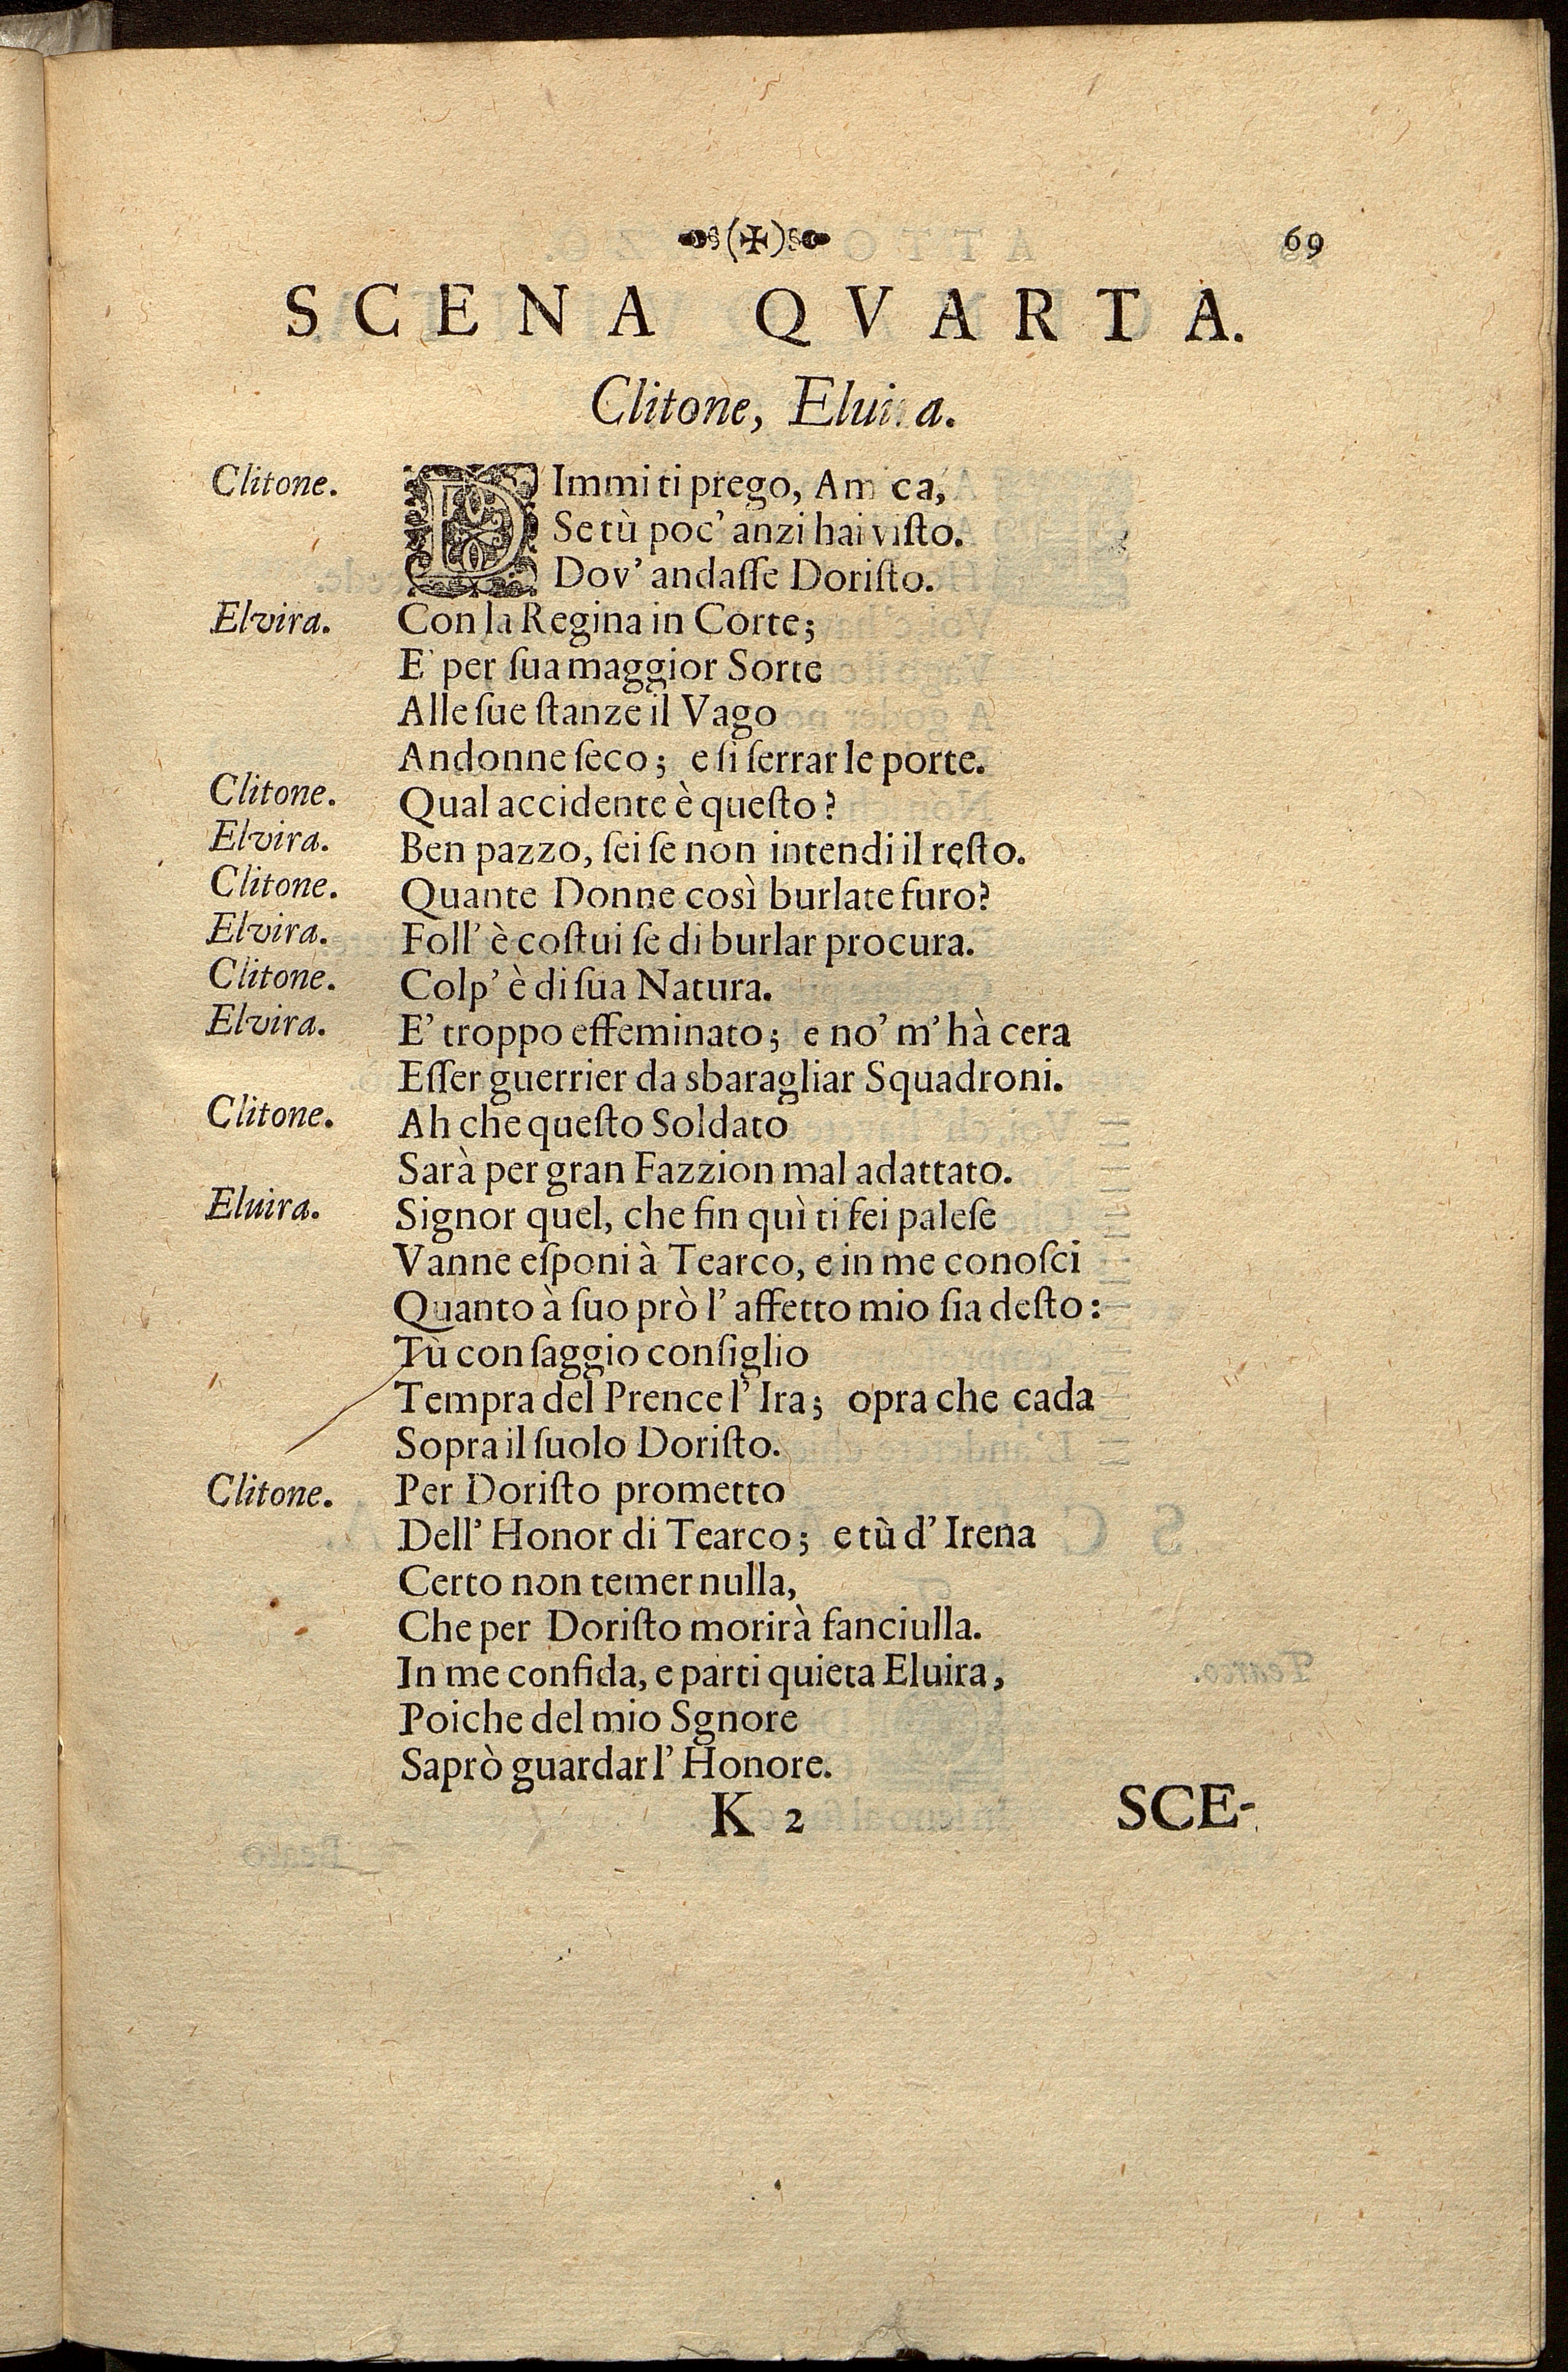 69
SCENA QVARTA.
Clitone, Eluira.
Clitone. DImmi ti prego, Amica,
Se tù poc' anzi hai viſto.
Dov' andaſſe Doriſto.
Elvira. Con la Regina in Corte;
E' per ſua maggior Sorte
Alle ſue ſtanze il Vago
Andonne ſeco; e ſi ſerrar le porte.
Clitone. Qual accidente è queſto?
Elvira. Ben pazzo, ſei ſe non intendi il reſto.
Clitone. Quante Donne così burlate furo?
Elvira. Foll' è coſtui ſe di burlar procura.
Clitone. Colp' è di ſua Natura.
Elvira. E' troppo effeminato; e no' m' hà cera
Eſſer guerrier da sbaragliar Squadroni.
Clitone. Ah che queſto Soldato
Sarà per gran Fazzion mal adattato.
Eluira. Signor quel, che fin quì ti fei paleſe
Vanne eſponi à Tearco, e in me conoſci
Quanto à ſuo prò l' affetto mio ſia deſto:
Tù con ſaggio conſiglio
Tempra del Prence l' Ira; opra che cada
Sopra il ſuolo Doriſto.
Clitone. Per Doriſto prometto
Dell' Honor di Tearco; e tù d' Irena
Certo non temer nulla,
Che per Doriſto morirà fanciulla.
In me confida, e parti quieta Eluira,
Poiche del mio Sgnore
Saprò guardar l' Honore.
K 2 SCE-